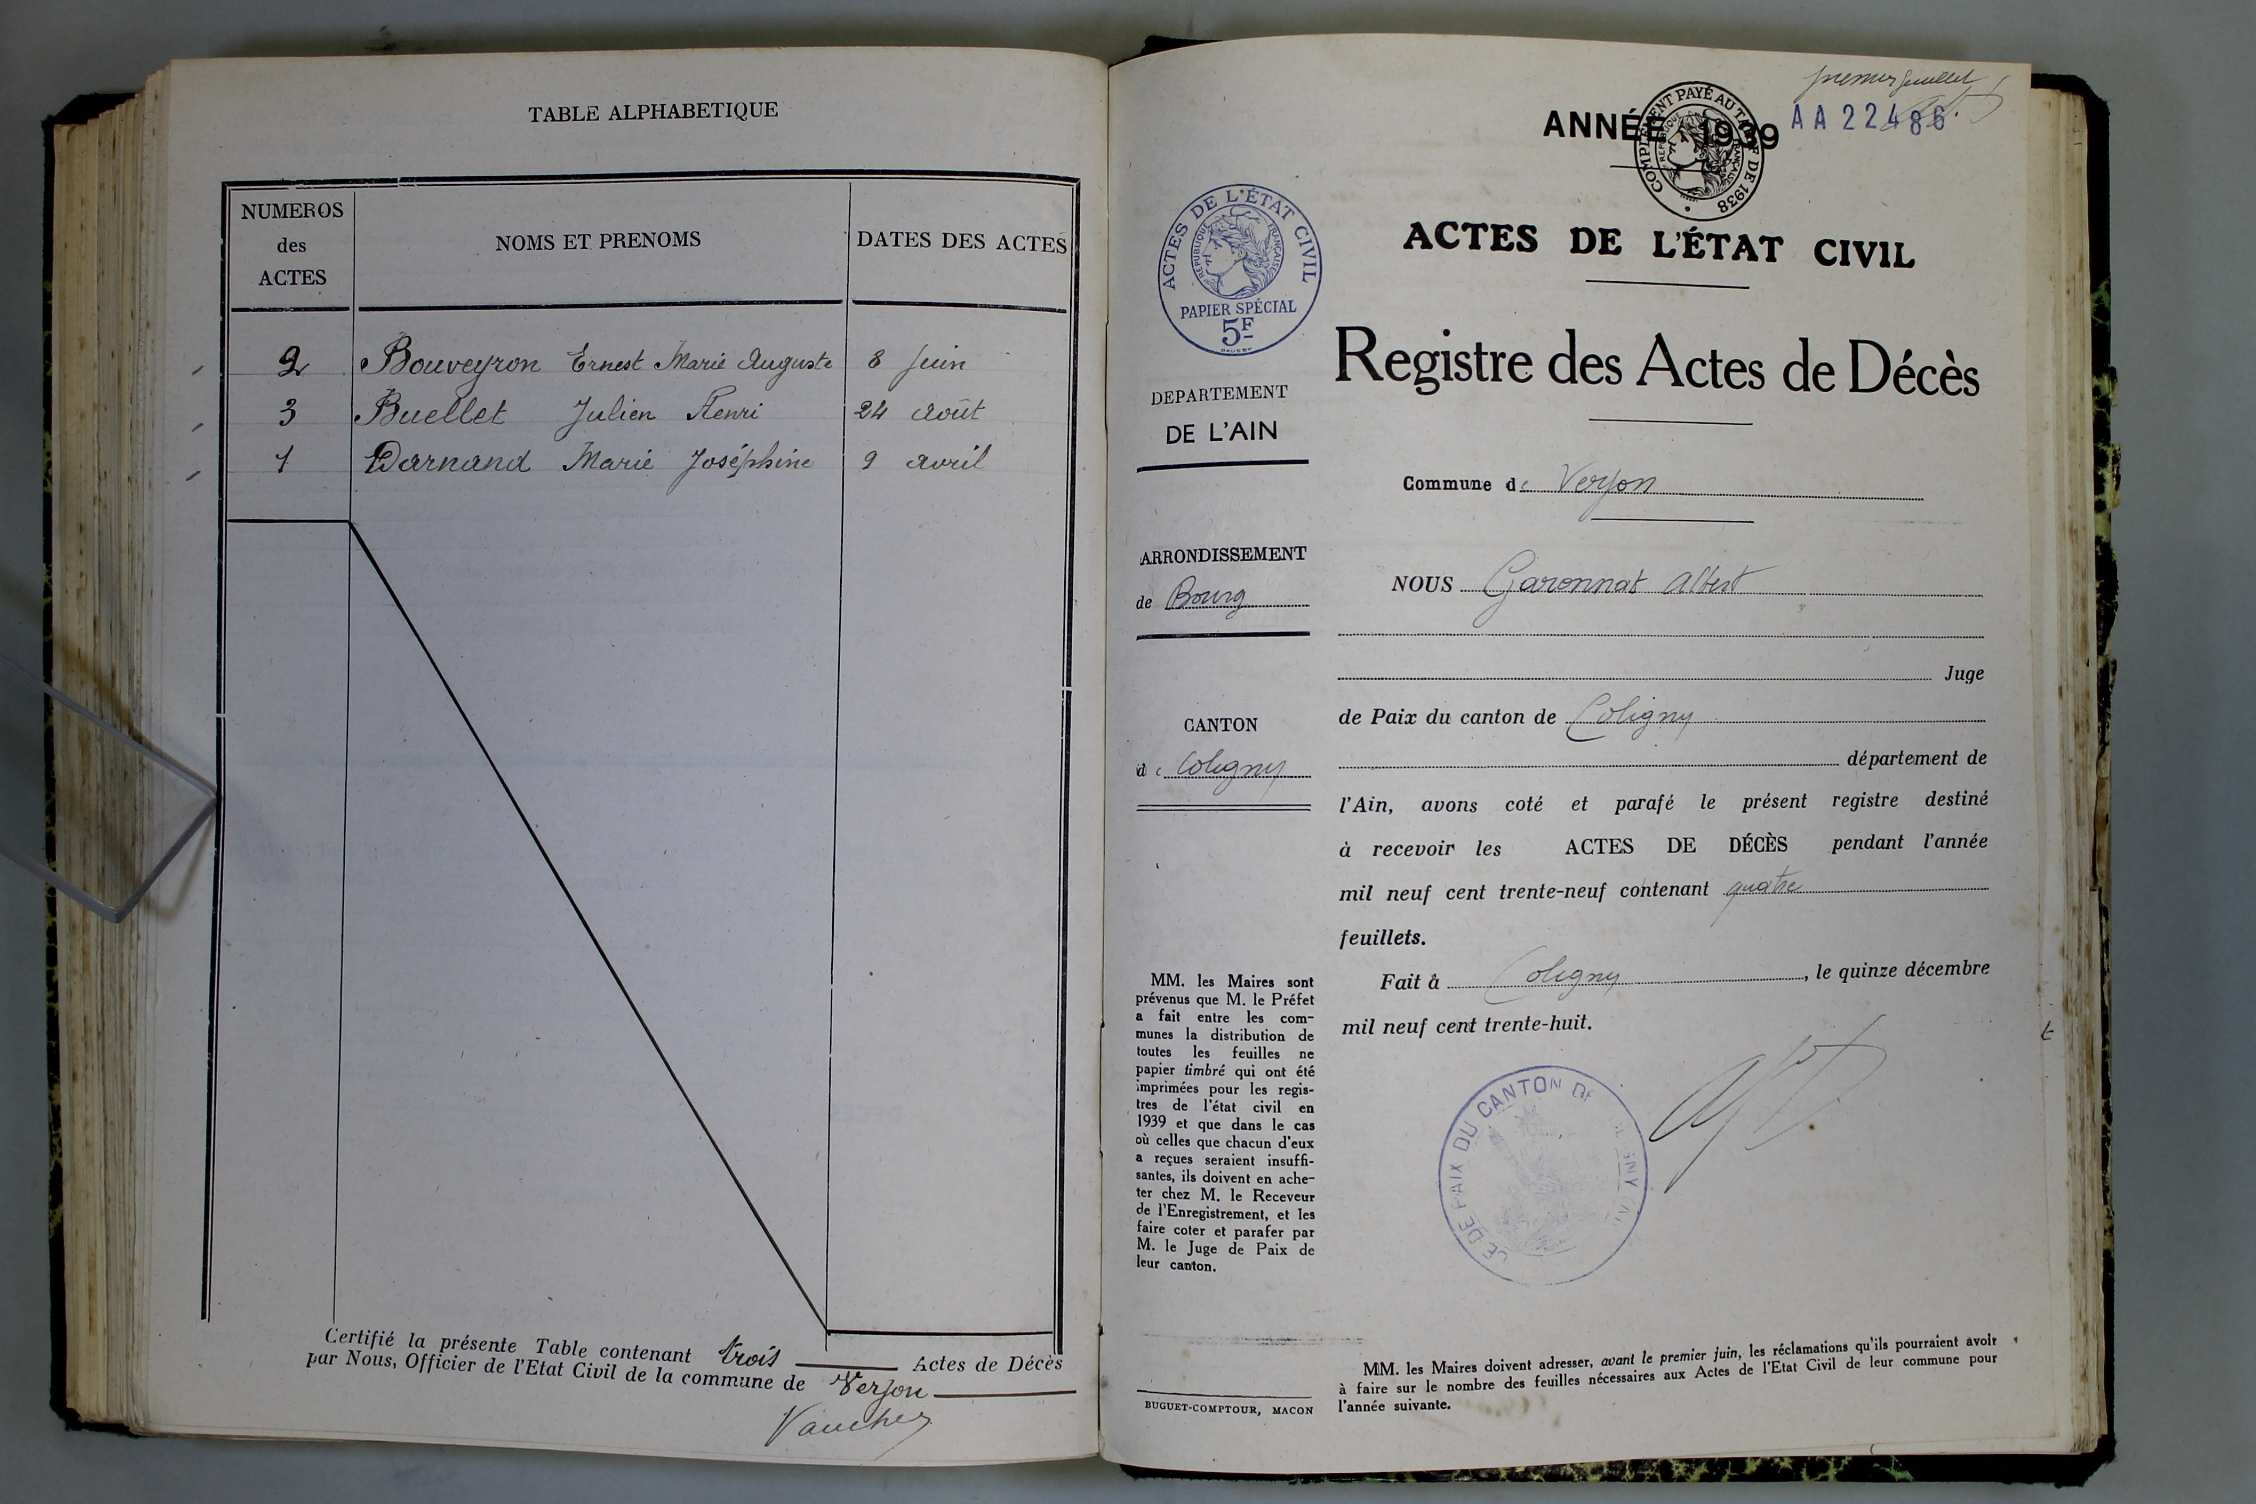 TABLE ALPHABETIQUE
NUMEROS
des
ACTES
NOMS ET PRENOMS
DATES DES ACTES
2 Bouveyron Ernest Marie Auguste 8 Juin
3 Buellet Julien Henri 24 Août
1 Darnand Marie Joséphine 9 Avril
Certifié la présente Table contenant trois Actes de Décès
par Nous, Officier de l'Etat Civil de la commune de Verjon
premier feuillet
AA 22486
ANNÉE 1939
COMPLÉMENT PAYÉ AU TARIF DE 1938
RÉPUBLIQUE FRANÇAISE
ACTES DE L'ÉTAT CIVIL
RÉPUBLIQUE FRANÇAISE
PAPIER SPÉCIAL
5F
ACTES DE L'ÉTAT CIVIL
Registre des Actes de Décès
DEPARTEMENT
DE L'AIN
ARRONDISSEMENT
de Bourg
CANTON
de Coligny
MM. les Maires sont
prévenus que M. le Préfet
a fait entre les com-
munes la distribution de
toutes les feuilles ne
papier timbré qui ont été
imprimées pour les regis-
tres de l'état civil en
1939 et que dans le cas
où celles que chacun d'eux
a reçues seraient insuffi-
santes, ils doivent en ache-
ter chez M. le Receveur
de l'Enregistrement, et les
faire coter et parafer par
M. le Juge de Paix de
leur canton.
BUGUET-COMPTOUR, MACON
Commune de Verjon
NOUS Garonnat Albert
Juge
de Paix du canton de Coligny
département de
l'Ain, avons coté et parafé le présent registre destiné
à recevoir les ACTES DE DÉCÈS pendant l'année
mil neuf cent trente-neuf contenant quatre
feuillets.
Fait à Coligny, le quinze décembre
mil neuf cent trente-huit.
CE DE PAIX DU CANTON DE
MM. les Maires doivent adresser, avant le premier juin, les réclamations qu'ils pourraient avoir
à faire sur le nombre des feuilles nécessaires aux Actes de l'Etat Civil de leur commune pour
l'année suivante.